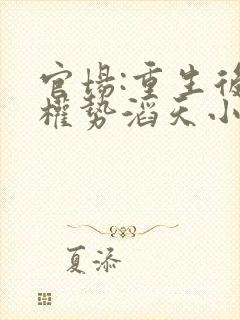 官場:重生後
權勢滔天小
夏添